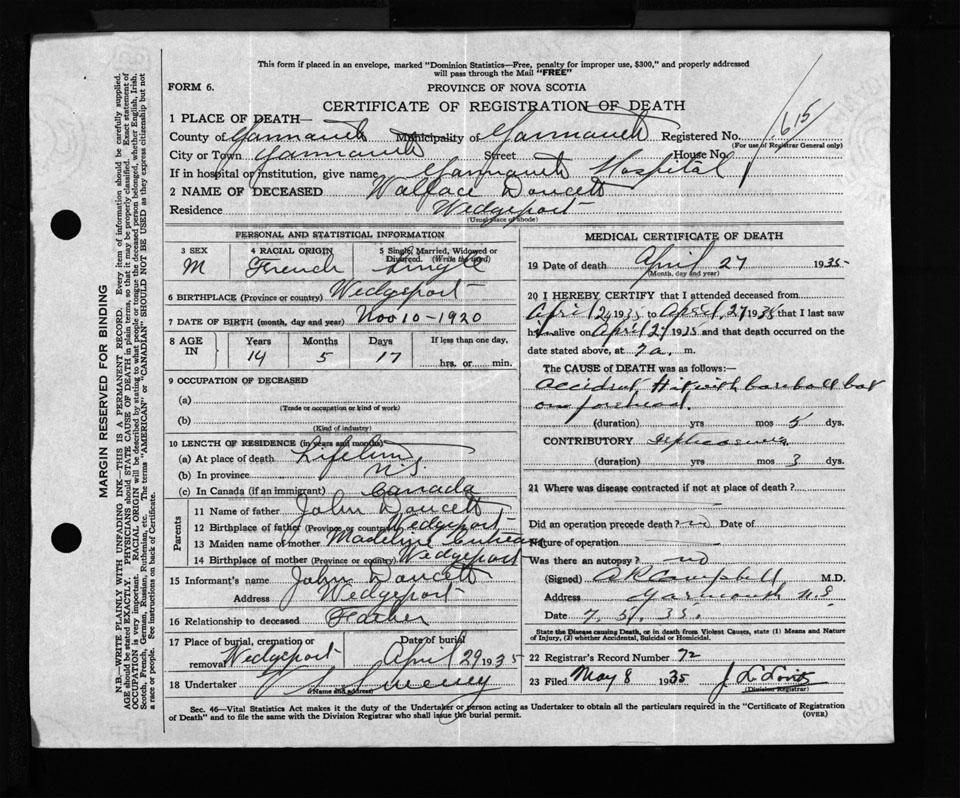 This form if placed in an envelope, marked "Dominion Statistics—Free, penalty for improper use, $300," and properly addressed
will pass through the Mail "FREE"
FORM 6.
PROVINCE OF NOVA SCOTIA
CERTIFICATE OF REGISTRATION OF DEATH
1 PLACE OF DEATH—
County of Yarmouth Municipality of Yarmouth Registered No. 615
(For use of Registrar General only)
City or Town Yarmouth Street House No.
If in hospital or institution, give name Yarmouth Hospital
2 NAME OF DECEASED Wallace Doucett
Residence Wedgeport
(Usual place of abode)
PERSONAL AND STATISTICAL INFORMATION
3 SEX 4 RACIAL ORIGIN 5 Single, Married, Widowed or
Divorced. (Write the word)
M French Single
6 BIRTHPLACE (Province or country) Wedgeport
7 DATE OF BIRTH (month, day and year) Nov 10-1920
8 AGE IN Years Months Days If less than one day,
14 5 17 hrs. or min.
9 OCCUPATION OF DECEASED
(a)
(Trade or occupation or kind of work)
(b)
(Kind of industry)
10 LENGTH OF RESIDENCE (in years and months)
(a) At place of death Lifetime
(b) In province N.S.
(c) In Canada (if an immigrant) Canada
Parents
11 Name of father John Doucett
12 Birthplace of father (Province or country) Wedgeport
13 Maiden name of mother Madelyn
14 Birthplace of mother (Province or country) Wedgeport
15 Informant's name John Doucett
Address Wedgeport
16 Relationship to deceased Father
17 Place of burial, cremation or Date of burial
removal Wedgeport April 29 1935
18 Undertaker Sweeney
(Name and address)
MEDICAL CERTIFICATE OF DEATH
19 Date of death April 27 1935
(Month, day and year)
20 I HEREBY CERTIFY that I attended deceased from
April 24 1935 to April 27 1935 that I last saw
him alive on April 27 1935 and that death occurred on the
date stated above, at 7 a. m.
The CAUSE of DEATH was as follows:—
Accident Hit with baseball bat
on forehead.
(duration) yrs mos 5 dys.
CONTRIBUTORY
(duration) yrs mos 3 dys.
21 Where was disease contracted if not at place of death?
Did an operation precede death? no Date of
Nature of operation
Was there an autopsy? no
(Signed) A R Campbell M.D.
Address Yarmouth N.S
Date 7. 5. 35.
State the Disease causing Death, or in death from Violent Causes, state (1) Means and Nature
of Injury, (2) whether Accidental, Suicidal or Homicidal.
22 Registrar's Record Number 72
23 Filed May 8 1935
(Division Registrar)
Sec. 46—Vital Statistics Act makes it the duty of the Undertaker or person acting as Undertaker to obtain all the particulars required in the "Certificate of Registration
of Death" and to file the same with the Division Registrar who shall issue the burial permit.
(OVER)
MARGIN RESERVED FOR BINDING
N.B.—WRITE PLAINLY WITH UNFADING INK—THIS IS A PERMANENT RECORD. Every item of information should be carefully supplied.
AGE should be stated EXACTLY. PHYSICIANS should STATE CAUSE OF DEATH in plain terms, so that it may be properly classified. Exact statement of
OCCUPATION is very important. RACIAL ORIGIN will be described by stating to what people or tongue the deceased person belonged, whether English, Irish,
Scotch, French, German, Russian, Ruthenian, etc. The terms "AMERICAN" or "CANADIAN" SHOULD NOT BE USED as they express citizenship but not
a race or people. See instructions on back of Certificate.